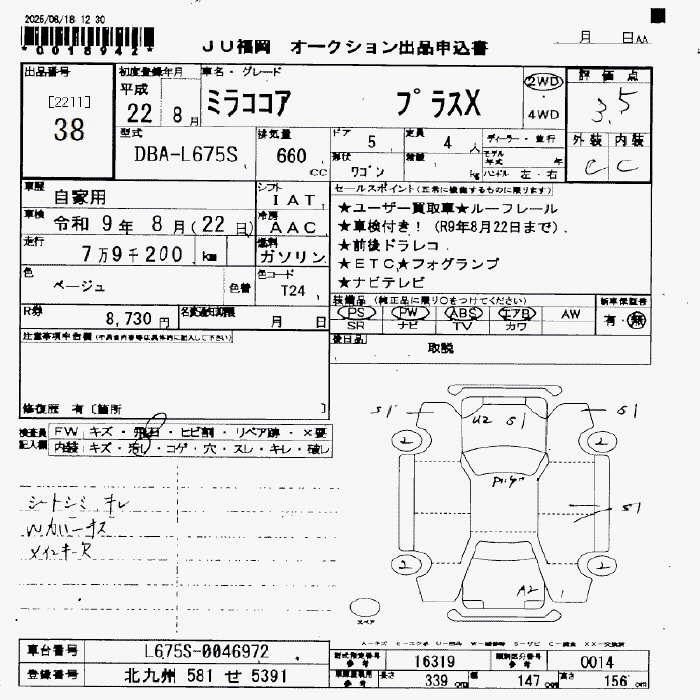 2025/06/18 12 30
*0018942*
JU福岡 オークション出品申込書
月 日 AA
出品番号
[2211]
38
初度登録年月
平成
22 8月
車名・グレード
ミラココア プラスX
2WD
4WD
評価点
3.5
外装 内装
C C
型式
DBA-L675S
排気量
660
cc
ドア
5
定員
4 人
形状
ワゴン
積載
kg
ディーラー・並行
モデル年式 年
ハンドル 左・右
車歴
自家用
シフト
IAT
車検
令和 9年 8月(22日)
冷房
AAC
走行
7万9千200 km
燃料
ガソリン
色
ベージュ
色替
色コード
T24
R券
8,730円
名変通知期限
月 日
セールスポイント(正常に機能するものに限ります)
★ユーザー買取車★ルーフレール
★車検付き!(R9年8月22日まで)
★前後ドラレコ
★ETC★フォグランプ
★ナビテレビ
装備品(純正品に限り○をつけてください)
PS PW ABS エアB AW
SR ナビ TV カワ
新車保証書
有・無
後日品
取説
注意事項申告欄
修復歴 有〔箇所 〕
検査員記入欄
FW キズ・飛石・ヒビ割・リペア跡・×要
内装 キズ・汚れ・コゲ・穴・スレ・キレ・破レ
シートシミ キレ
メインキーR
S1
U2 S1
S1
2
2
S1
2
2
A2
スペア
車台番号
L675S-0046972
登録番号
北九州 581 せ 5391
型式指定番号
参考
16319
類別区分番号
参考
0014
長さ 339cm
幅 147cm
高さ 156cm